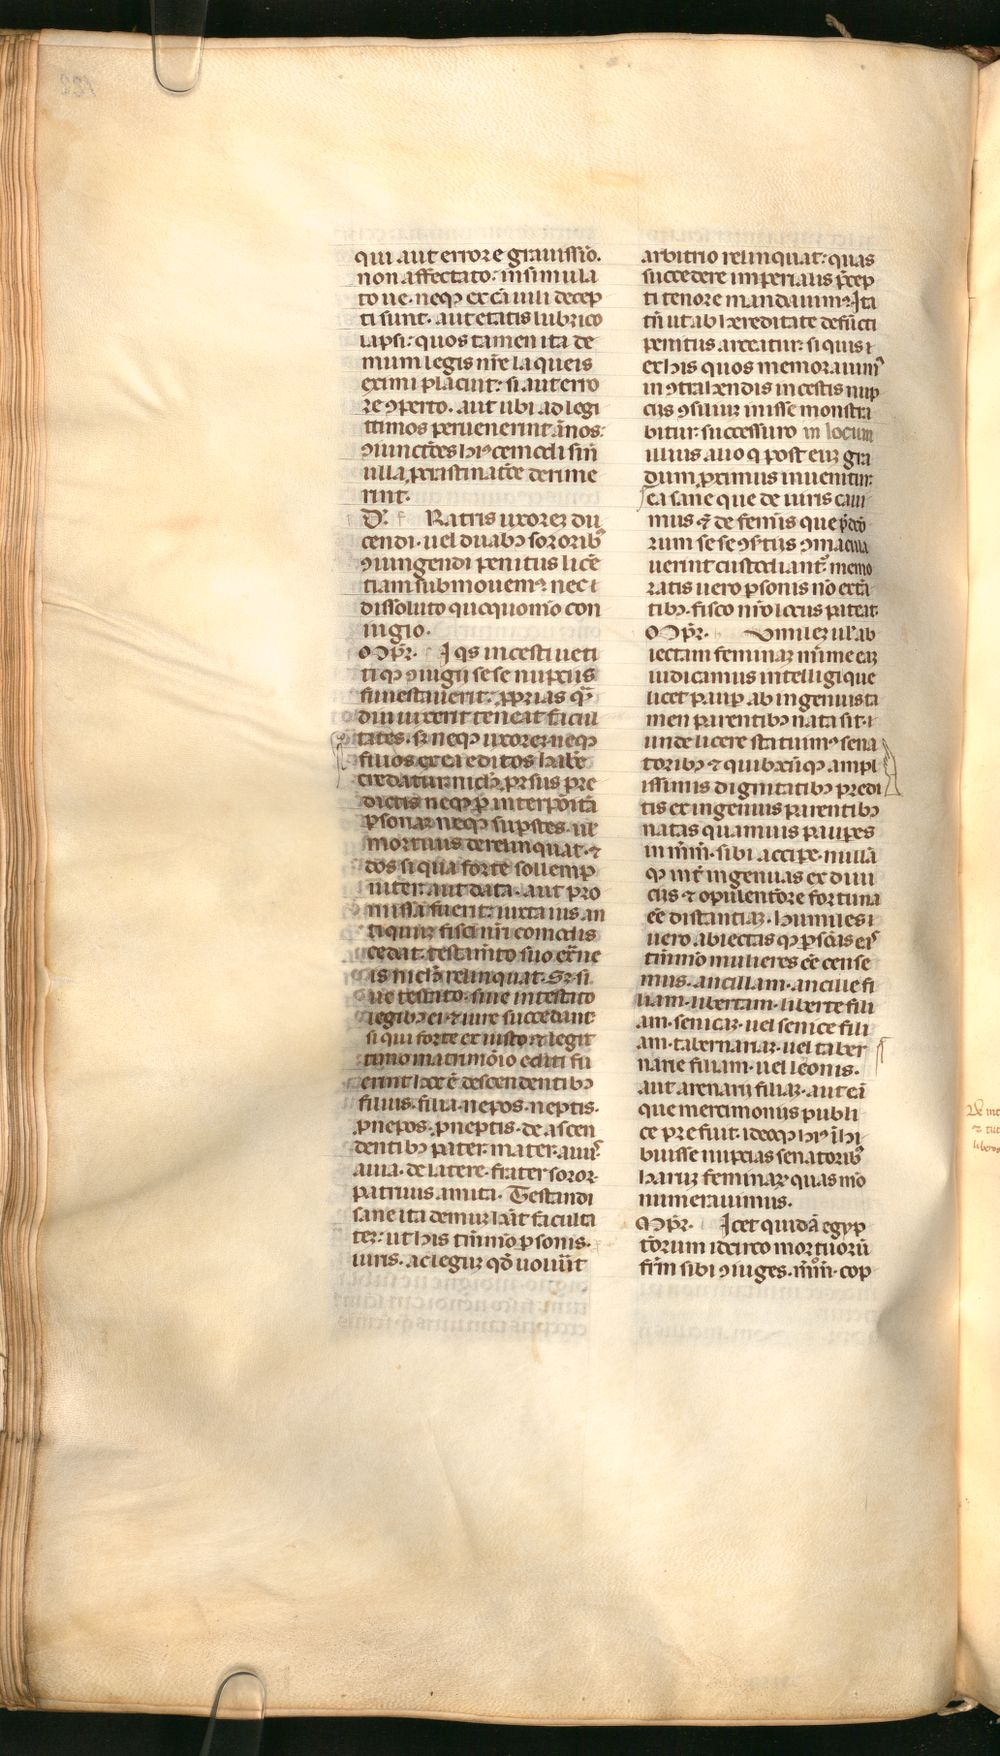 qui aut errore grauissīo.
non affectato: insimula
to ue. neqꝫ ex cā uili decep
ti sunt. aut etatis lubrico
lapsi: quos tamen ita de
mum legis nr̄e laqueis
eximi placuit: si aut erro
re ꝯperto. aut ubi ad legi
ttimos peruenerint ānos:
ꝯiunctōes hiꝰcemodi sin̄
ulla ꝓcrastinatōe derime
rint.
Ratris uxorez du
cendi. uel duabꝫ sororibꝰ
ꝯiungendi penitus licē
tiam submouemꝰ nec
dissoluto quoquomō con
iugio.
Iqs incesti ueti
tiqꝫ ꝯiugii sese nuptiis
funestauerit: ꝓprias qᵐ
diu uixerit teneat facul
tates. sꝫ neqꝫ uxorez neqꝫ
filios ex ea editos habē
credatur nichꝉ ꝓrsus pre
dictis neqꝫ ꝑ interpōitā
ꝑsonaꝫ neqꝫ suꝑstes. ue
mortuus derelinquat.
dos si qua forte sollemp
niter. aut data. aut pro
missa fuerit: iuxta ius an
tiquuꝫ fisci nr̄i comodis
cedat. testam̄to suo ext̄ne
is nichꝉ relinquat. Sꝫ si
ue testato. siue intestato
legibꝫ ei ⁊ iure succedant
si qui forte ex iusto ⁊ legit
timo matrimōio editi fu
erint hoc ē descendentibꝫ
filius. filia. nepos. neptis.
ꝓnepos. ꝓneptis. de ascen
dentibꝫ pater. mater. auuꝰ
auia. de latere. frater soror.
patruus. amita. Testandi
sane ita demuꝫ hāt faculta
teꝫ: ut his tm̄mō ꝑsonis.
iuris. ac legum qd̄ uoluīt
arbitrio relinquat: quas
succedere imperialis p̄cep
ti tenore mandauimꝰ. Ita
tn̄ ut ab hereditate defūcti
penitus arceatur: si quis
ex his quos memorauimꝰ
in ꝯtrahendis incestis nup
ciis ꝯsiliuꝫ inisse monstra
bitur: successuro in locum
illius alio q post euꝫ gra
dum ꝓximus inuenitur.
Ea sane que de uiris caui
mus ⁊ de feminis que p̄dco
rum sese ꝯsortiis ꝯmacula
uerint custodiantꝰ memo
ratis uero ꝑsonis nō extā
tibꝫ. fisco nr̄o locus pateat.
Umilez ul' ab
iectam feminaꝫ mīme eaꝫ
iudicamus intelligi que
licet pauꝑ ab ingenuis ta
men parentibꝫ nata sit.
unde licere statuimꝰ sena
toribꝫ ⁊ quibꝫcūqꝫ ampl
issimis dignitatibꝫ predi
tis ex ingenuis parentibꝫ
natas quamuis pauꝑes
in m̄im̄. sibi accipe. nullā
qꝫ int̄ ingenuas ex diui
ciis ⁊ opulentiore fortuna
eē distantiaꝫ. humiles
uero abiectas qꝫ ꝑsōas eaˢ
tm̄mō mulieres eē cense
mus. ancillam. ancille fi
liam. libertam. liberte fili
am. senicaꝫ. uel senice fili
am. tabernariaꝫ. uel taber
narie filiam. uel leonis.
aut arenarij filiaꝫ. aut eā
que mercimoniis publi
ce prefuit. ideoqꝫ hiꝰ īhi
buisse nuptias senatoribꝰ
haruꝫ feminaꝫ quas mō
numerauimus.
Icet quidā egyp
tiorum idcirco mortuorū
fr̄m sibi ꝯiuges. m̄im̄. cop